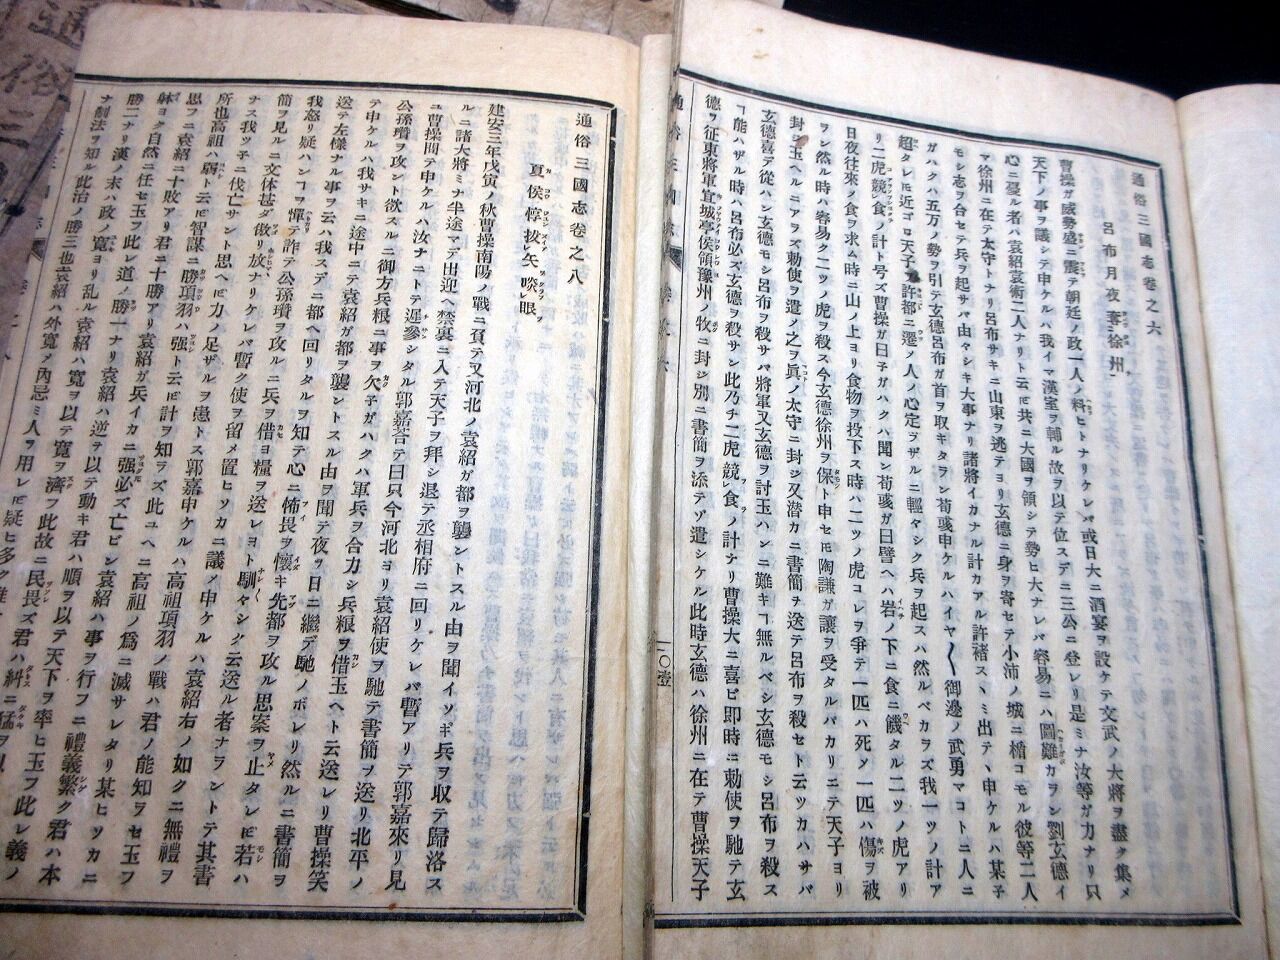 通俗三國志卷之六
呂布月夜奪徐州
曹操ガ威勢盛ニ震テ朝廷ノ政一人ノ料ヒトナリケレバ或日大ニ酒宴ヲ設ケテ文武ノ大將ヲ盡ク集メ
天下ノ事ヲ議シテ申ケルハ我イマ漢室ヲ輔ル故ヲ以テ位スデニ三公ニ登レリ是ミナ汝等ガ力ナリ只
心ニ憂ル者ハ袁紹袁術二人ナリト云𪜈共ニ大國ヲ領シテ勢ヒ大ナレバ容易ニハ圖難カラン劉玄德イ
マ徐州ニ在テ太守トナリ呂布サキニ山東ヲ逃テヨリ玄德ニ身ヲ寄セテ小沛ノ城ニ楯コモル彼等二人
モシ志ヲ合セテ兵ヲ起サバ由々シキ大事ナリ諸將イカナル計カアル許褚スヽミ出テ申ケルハ某子
ガハクハ五万ノ勢ヲ引テ玄德呂布ガ首ヲ取キタラン荀彧申ケルハイヤ〳〵御邊ノ武勇マコトニ人ニ
超タレ𪜈近ゴロ天子許都ニ遷ノ人ノ心定ラザルニ輕々シク兵ヲ起スハ然ルベカラズ我一ツノ計ア
リ二虎競食ノ計ト号ズ曹操ガ曰子ガハクハ聞ン荀彧ガ曰譬ヘハ岩ノ下ニ食ニ饑タル二ツノ虎アリ
日夜往來シ食ヲ求ム時ニ山ノ上ヨリ食物ヲ投下ス時ハ二ツノ虎コレヲ爭テ一匹ハ死メ一匹ハ傷ヲ被
ラン然ル時ハ容易ク二ツノ虎ヲ殺ス今玄德徐州ヲ保ト申セ𪜈陶謙ガ讓ヲ受タルバカリニテ天子ヨリ
封シ玉ヘルニアラズ勅使ヲ遣ノ之ヲ眞ノ太守ニ封ジ又潛カニ書簡ヲ送テ呂布ヲ殺セト云ツカハサバ
玄德喜デ從ハン玄德モシ呂布ヲ殺サバ將軍又玄德ヲ討玉ハンニ難キ𪜈無ルベシ玄德モシ呂布ヲ殺ス
ヿ能ハザル時ハ呂布必ズ玄德ヲ殺サン此乃チ二虎競食ノ計ナリ曹操大ニ喜ビ即時ニ勅使ヲ馳テ玄
德ヲ征東將軍宜城亭侯領豫州ノ牧ニ封ジ別ニ書簡ヲ添テゾ遣シケル此時玄德ハ徐州ニ在テ曹操天子
通俗三國志卷之八
夏侯惇拔矢啖眼
建安三年戊寅ノ秋曹操南陽ノ戰ニ負テ又河北ノ袁紹ガ都ヲ襲ントスル由ヲ聞イソギ兵ヲ取テ歸洛ス
ルニ諸大將ミナ半途マデ出迎ヘ禁裏ニ入テ天子ヲ拜シ退テ丞相府ニ回リケレバ暫アリテ郭嘉來リ見
ユ曹操問テ申ケルハ汝ナニトテ遲參シタル郭嘉荅テ曰只今河北ヨリ袁紹使ヲ馳テ書簡ヲ送リ北平ノ
公孫瓚ヲ攻ント欲スルニ御方兵粮ニ事ヲ欠子ガハクハ軍兵ヲ合力シ兵粮ヲ借玉ヘト云送レリ曹操笑
テ申ケルハ我サキニ途中ニテ袁紹ガ都ヲ襲ントスル由ヲ聞テ夜ヲ日ニ繼デ馳ノボレリ然ルニ書簡ヲ
送テ左樣ナル事ヲ云ハ我スデニ都ヘ回リタルヲ知テ心ニ怖畏ヲ懷キ先都ヲ攻ル思案ヲ止タレ𪜈若ハ
我怒リ疑ハンヿヲ憚テ詐テ公孫瓚ヲ攻ルニ兵ヲ借ヨ糧ヲ送レヨト馴々シク云送ル者ナラントテ其書
簡ヲ見ルニ文体甚ダ傲リ放ナリケレバ暫ク使ヲ留メ置ヒソカニ議ノ申ケルハ袁紹右ノ如クニ無禮ヲ
ナス我ツ子ニ伐亡サント思ヘ𪜈力ノ足ザルヲ患トス郭嘉申ケルハ高祖項羽ノ戰ハ君ノ能知ヲセ玉フ
所也高祖ハ弱ト云𪜈智謀ニ勝項羽ハ强ト云𪜈計ヲ知ラズ此ユヘニ高祖ノ爲ニ滅サレタリ某ヒソカニ
思フニ袁紹ニ十敗アリ君ニ十勝アリ袁紹ガ兵イカニ强𪜈必ズ亡ビン袁紹ハ事ヲ行フニ禮義繁ク君ハ本
躰ヨク自然ニ任セ玉ヲ此レ道ノ勝一ナリ袁紹ハ逆テ以テ動キ君ハ順ヲ以テ天下ヲ率ヒ玉ヲ此レ義ノ
勝二ナリ漢ノ末ハ政ノ寬ヨリ亂ル袁紹ハ寬ヲ以テ寬ヲ濟フ此故ニ民畏ズ君ハ糾ニ猛ヲ以
ナ制法ヲ知ル此治ノ勝三也袁紹ハ外寬メ内忌ミ人ヲ用レ𪜈疑ヒ多ク